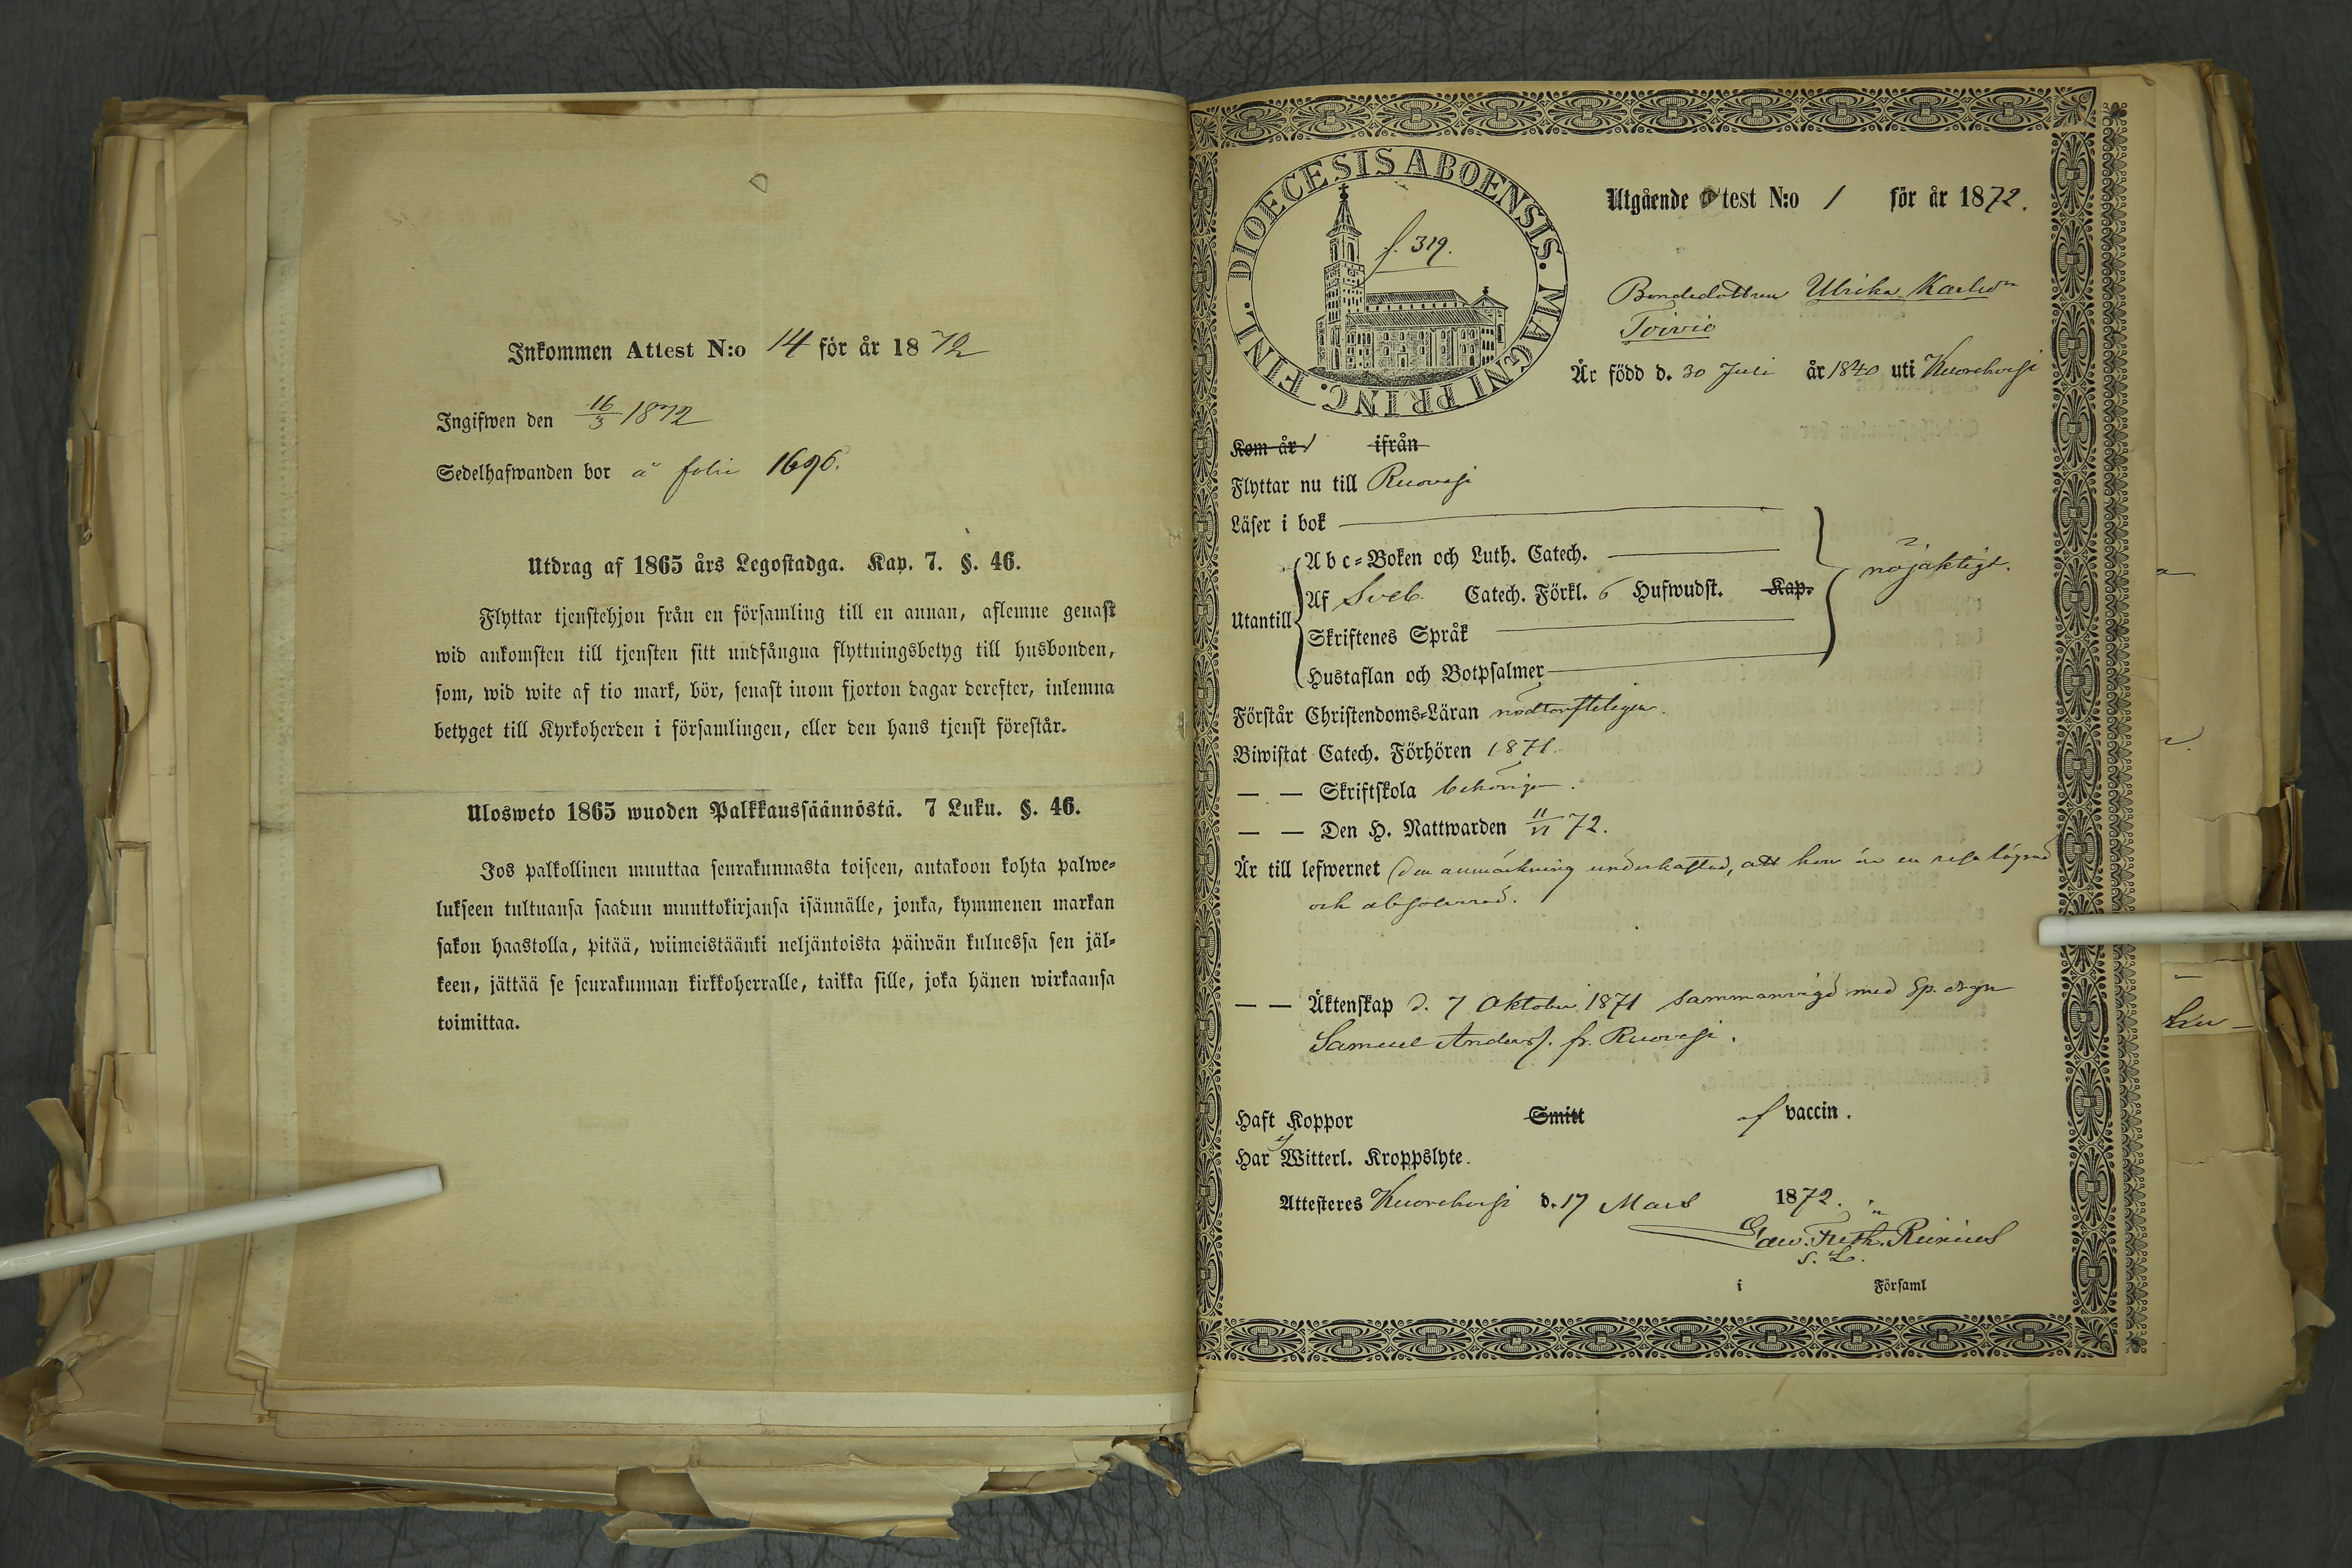 Inkommen Attest N:o 14 för år 1872
Ingifwen den 16/3 1872
Sedelhafwanden bor å folio 1696.
Utdrag af 1865 års Legostadga. Kap. 7. §. 46.
Flyttar tjenstehjon från en församling till en annan, aflemne genast
wid ankomsten till tjensten sitt undfångna flyttningsbetyg till husbonden,
som, wid wite af tio mark, bör, senast inom fjorton dagar derefter, inlemna
betyget till Kyrkoherden i församlingen, eller den hans tjenst förestår.
Ulosweto 1865 wuoden Palkkaussäännöstä. 7 Luku. §. 46.
Jos palkollinen muuttaa seurakunnasta toiseen, antakoon kohta palwe-
lukseen tultuansa saadun muuttokirjansa isännälle, jonka, kymmenen markan
sakon haastolla, pitää, wiimeistäänki neljäntoista päiwän kuluessa sen jäl-
keen, jättää se seurakunnan kirkkoherralle, taikka sille, joka hänen wirkaansa
toimittaa.
DIOECESIS ABOENSIS. MAGNI PRINC. FINL.
f. 319.
Utgående Attest N:o 1 för år 1872.
Bondedottren Ulrika Karlsdr
Toivio
Är född d. 30 Juli år 1840 uti Kuorehvesi
Kom år ifrån
Flyttar nu till Ruovesi
Läser i bok
Abc-Boken och Luth. Catech.
Utantill Af Sveb. Catech. Förkl. 6 Hufwudst. Kap. nöjaktigt.
Skriftenes Språk
Hustaflan och Botpsalmer
Förstår Christendoms-Läran nödtorfteligen.
Biwistat Catech. Förhören 1871.
— — Skriftskola behörigen.
— — Den H. Nattwarden 72.
Är till lefwernet den anmärkning underkastad, att hon är en resa lägrad
och absolverad.
— — Äktenskap d. 7 Oktober 1871 sammanvigd med Sp. drgn
Samuel Anders. fr. Ruovesi.
Haft Koppor Smitt af vaccin.
Har ej Witterl. Kroppslyte.
Attesteres Kuorehvesi d. 17 Mars 1872.
i Församl